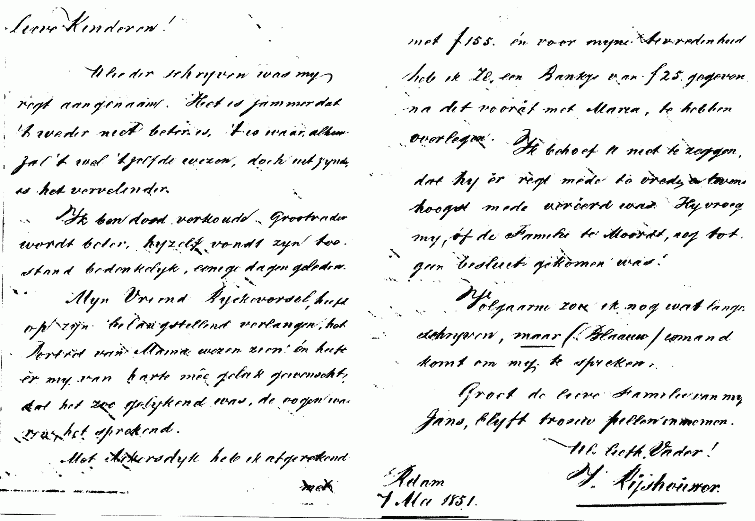 Lieve Kinderen!
Ulieder schryven was my
regt aangenaam. Het is jammer dat
't weder niet beter is, 't is waar, alhier
zal 't wel 't zelfde wezen, doch uit zynde,
is het vervelender.
Ik ben dood verkoude. Grootvader
wordt beter, hyzelf vondt zyn toe-
stand bedenkelyk, eenige dagen geleden.
Myn Vriend Ryckevorsel, heeft
op zyn belangstellend verlangen, het
Portret van Mama wezen zien! én heeft
er my van harte mée geluk gewenscht,
dat het zoo gelykend was, de oogen wa-
ren het sprekend.
Met Akersdyk heb ik afgerekend
met
met f155. én voor myne tevredenheid
heb ik ZE. een Bankje van f25 gegeven
na dit vooráf met Maria, te hebben
overlegen. Ik behoef U niet te zeggen,
dat hy er regt mede te vrede, a tevens
hoogst mede veréerd was. Hy vroeg
my, óf de Familie te Moordt, nog tot
geen besluit gekomen was!
Volgaarne zou ik nog wat langer
schryven, maar (Blaauw) iemand
komt om my te spreken.
Groet de lieve Familie van my
Jans, blyft trouw pillen innemen.
Ul. liefh. Vader!
Rdam
7 Mei 1851.
J. Rijshouwer.